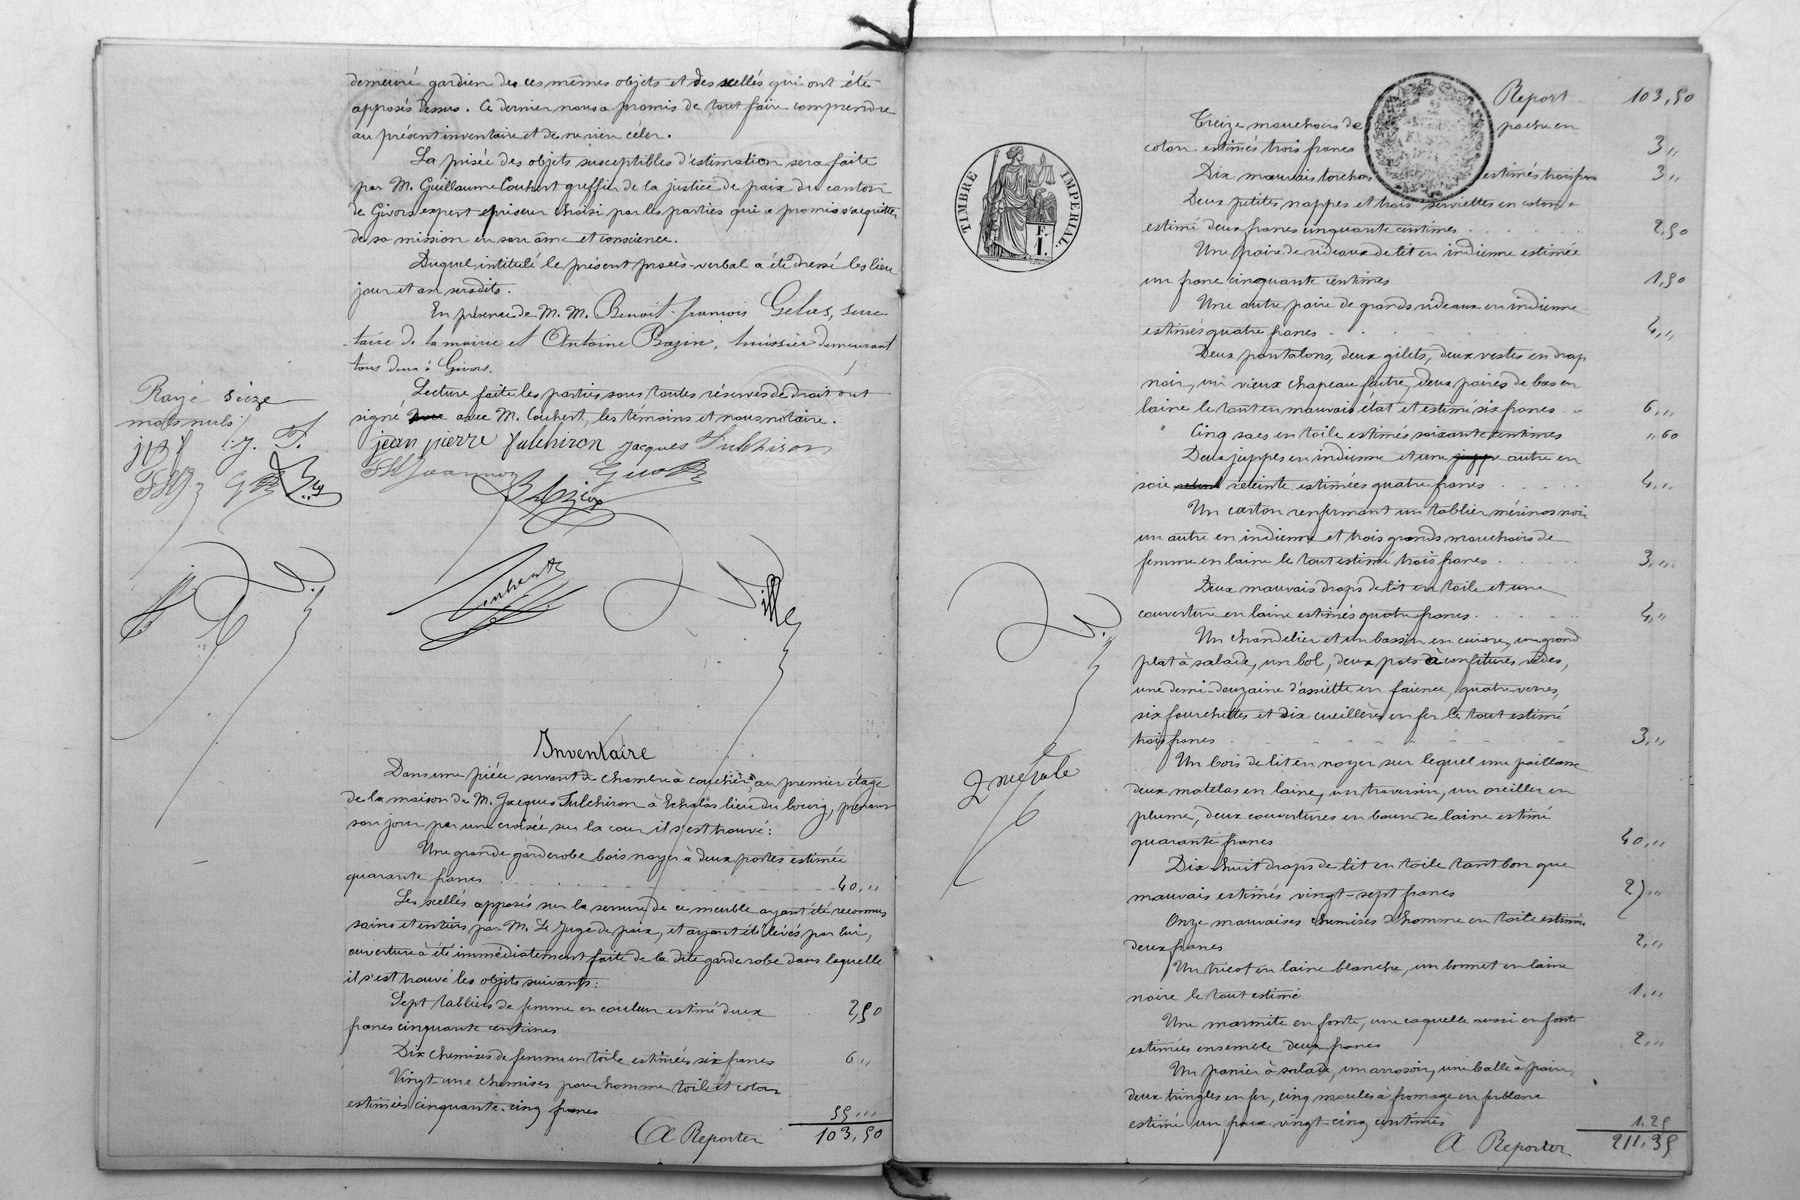 demeuré gardien des ces mêmes objets et des scellés qui ont été
apposés dessus. Ce dernier nous a promis de tout faire comprendre
au présent inventaire et de ne rien céler.
La prisée des objets susceptibles d'estimation sera faite
par M. Guillaume Couhert greffier de la justice de paix du canton
de Givors expert priseur choisi par les parties qui a promis s'acquitter
de sa mission en son âme et conscience.
Duquel intitulé le présent procès-verbal a été dressé les lieu
jour et an susdits.
En présence de M. M. Benoit-françois Gelas, secré
taire de la mairie et Antoine Bazin, huissier demeurant
tous deux à Givors.
Lecture faite les parties sous toutes réserves de droit ont
signé avec M. Couhert, les témoins et nous notaire.
Rayé seize
mots nuls
jean pierre fulchiron jacques Fulchiron
Inventaire
Dans une pièce servant de chambre à coucher, au premier étage
de la maison de M. Jacques Fulchiron à Echalas lieu du bourg, prenant
son jour par une croisée sur la cour il s'est trouvé:
Une grande garderobe bois noyer à deux portes estimée
quarante francs 40,"
Les scellés apposés sur la serrure de ce meuble ayant été reconnus
sains et entiers par M. Le Juge de paix, et ayant été levés par lui,
ouverture a été immédiatement faite de la dite garderobe dans laquelle
il s'est trouvé les objets suivants:
Sept tabliers de femme en couleur estimé deux
francs cinquante centimes 2,50
Dix chemises de femme en toile estimées six francs 6 "
Vingt-une chemises pour homme toile et coton
estimées cinquante-cinq francs 55 "
A Reporter 103,50
TIMBRE IMPERIAL
E. I.
2me rôle
Report 103,50
Treize mouchoirs de poche en
coton estimés trois francs 3 "
Dix mauvais torchons estimés trois francs 3 "
Deux petites nappes et trois serviettes en coton
estimé deux francs cinquante centimes 2,50
Une paire de rideaux de lit en indienne estimée
un franc cinquante centimes 1,50
Une autre paire de grands rideaux en indienne
estimés quatre francs 4,"
Deux pantalons, deux gilets, deux vestes en drap
noir, un vieux chapeau feutre, deux paires de bas en
laine le tout en mauvais état et estimé six francs 6,"
Cinq sacs en toile estimés soixante centimes " 60
Deux juppes en indienne et une juppe autre en
soie reteinte estimées quatre francs 4,"
Un carton renfermant un tablier mérinos noir
un autre en indienne et trois grands mouchoirs de
femme en laine le tout estimé trois francs 3,"
Deux mauvais draps de lit en toile et une
couverture en laine estimés quatre francs 4,"
Un chandelier et un bassin en cuivre, un grand
plat à salade, un bol, deux pots à confitures vides,
une demi-douzaine d'assiette en faïence, quatre verres,
six fourchettes et dix cueillères en fer le tout estimé
trois francs 3,"
Un bois de lit en noyer sur lequel une paillasse
deux matelas en laine, un traversin, un oreiller en
plume, deux couvertures en bourre de laine estimé
quarante francs 40,"
Dix-huit draps de lit en toile tant bon que
mauvais estimés vingt-sept francs 27 "
Onze mauvaises chemises d'homme en toile estimées
deux francs 2,"
Un tricot en laine blanche, un bonnet en laine
noire le tout estimé 1,"
Une marmite en fonte, une caquelle aussi en fonte
estimées ensemble deux francs 2,"
Un panier à salade, un arrosoir, une balle à pain,
deux tringles en fer, cinq moules à fromage en ferblanc
estimé un franc vingt-cinq centimes 1.25
A Reporter 211.35